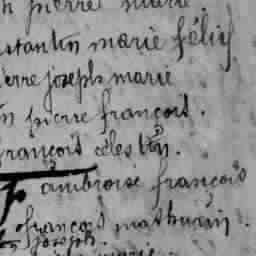 n pierre marie
nstantin marie félix
ierre joseph marie
n pierre françois.
françois célestin.
ambroise françois
françois mathurin.
joseph.
marie